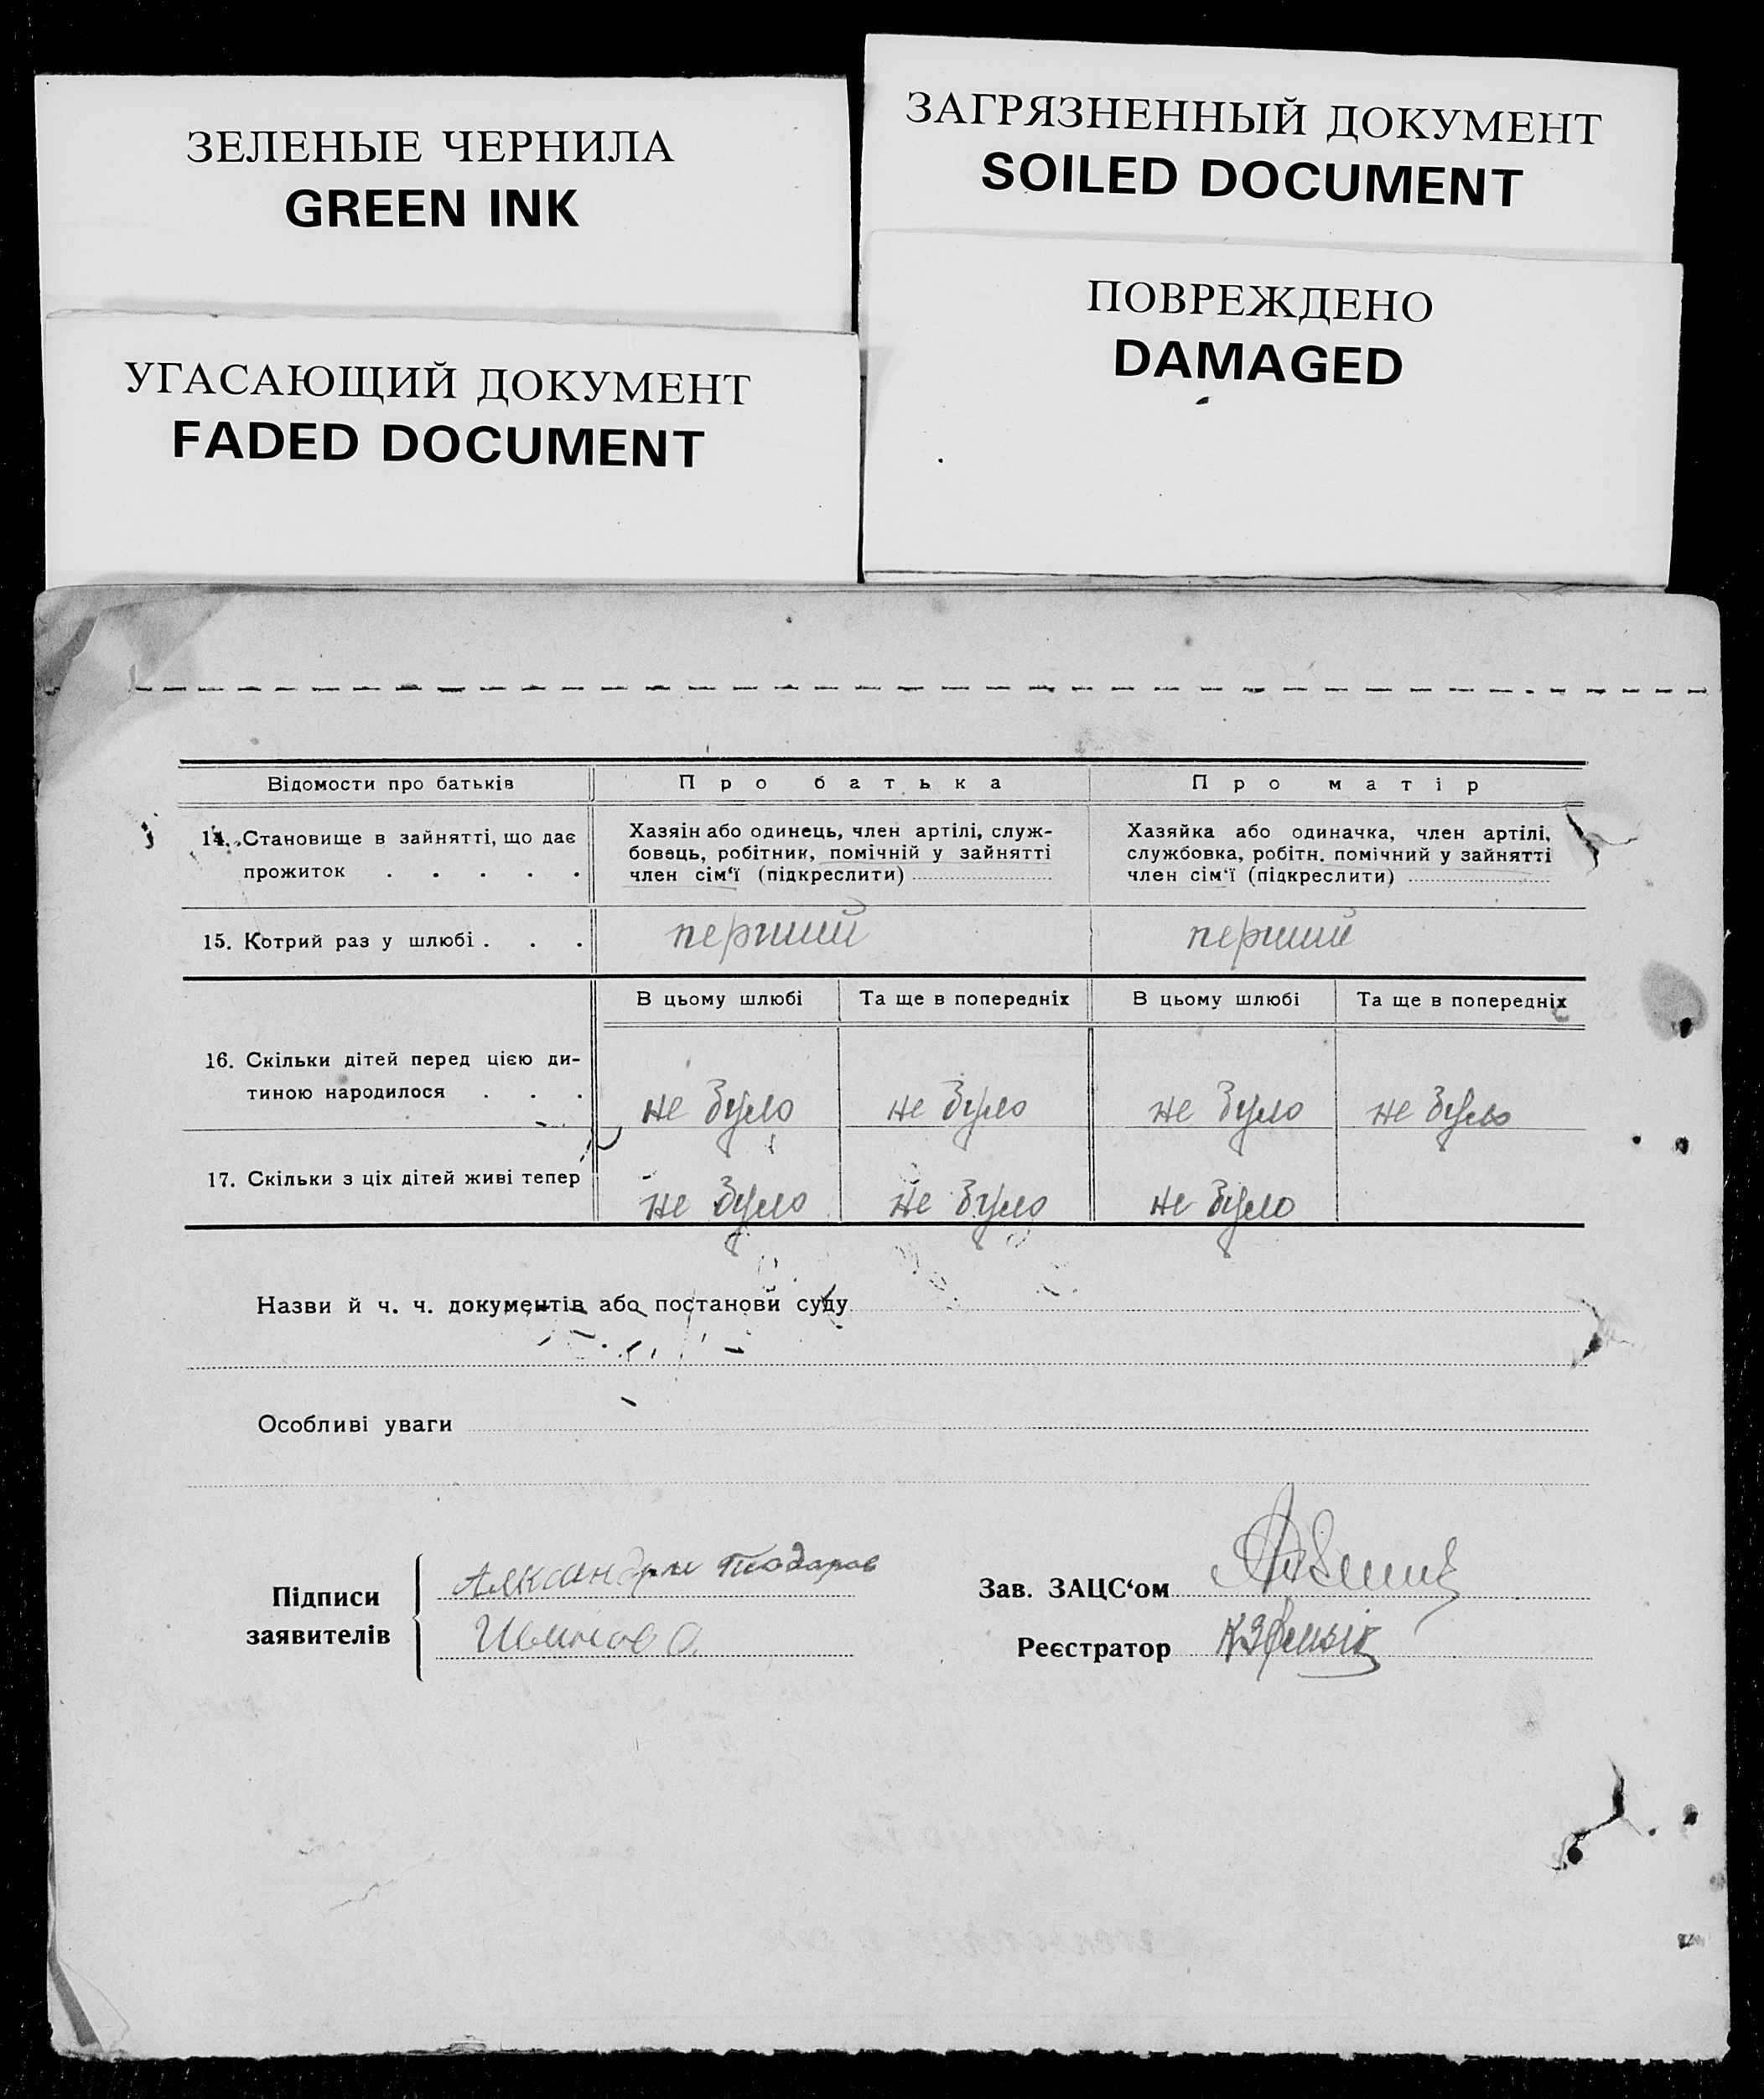 ЗЕЛЕНЫЕ ЧЕРНИЛА
GREEN INK
УГАСАЮЩИЙ ДОКУМЕНТ
FADED DOCUMENT
ЗАГРЯЗНЕННЫЙ ДОКУМЕНТ
SOILED DOCUMENT
ПОВРЕЖДЕНО
DAMAGED
Відомости про батьків Про батька Про матір
14. Становище в зайнятті, що дає прожиток . . . . .
Хазяїн або одинець, член артілі, служ-
бовець, робітник, помічній у зайнятті
член сім'ї (підкреслити)
Хазяйка або одиначка, член артілі,
службовка, робітн. помічний у зайнятті
член сім'ї (підкреслити)
15. Котрий раз у шлюбі . . . перший перший
В цьому шлюбі Та ще в попередніх В цьому шлюбі Та ще в попередніх
16. Скільки дітей перед цією ди-
тиною народилося . . . не було не було не було не було
17. Скільки з ціх дітей живі тепер не було не було не було
Назви й ч. ч. документів або постанови суду
Особливі уваги
Підписи
заявителів
Иванов О.
Зав. ЗАЦС‘ом
Реєстратор